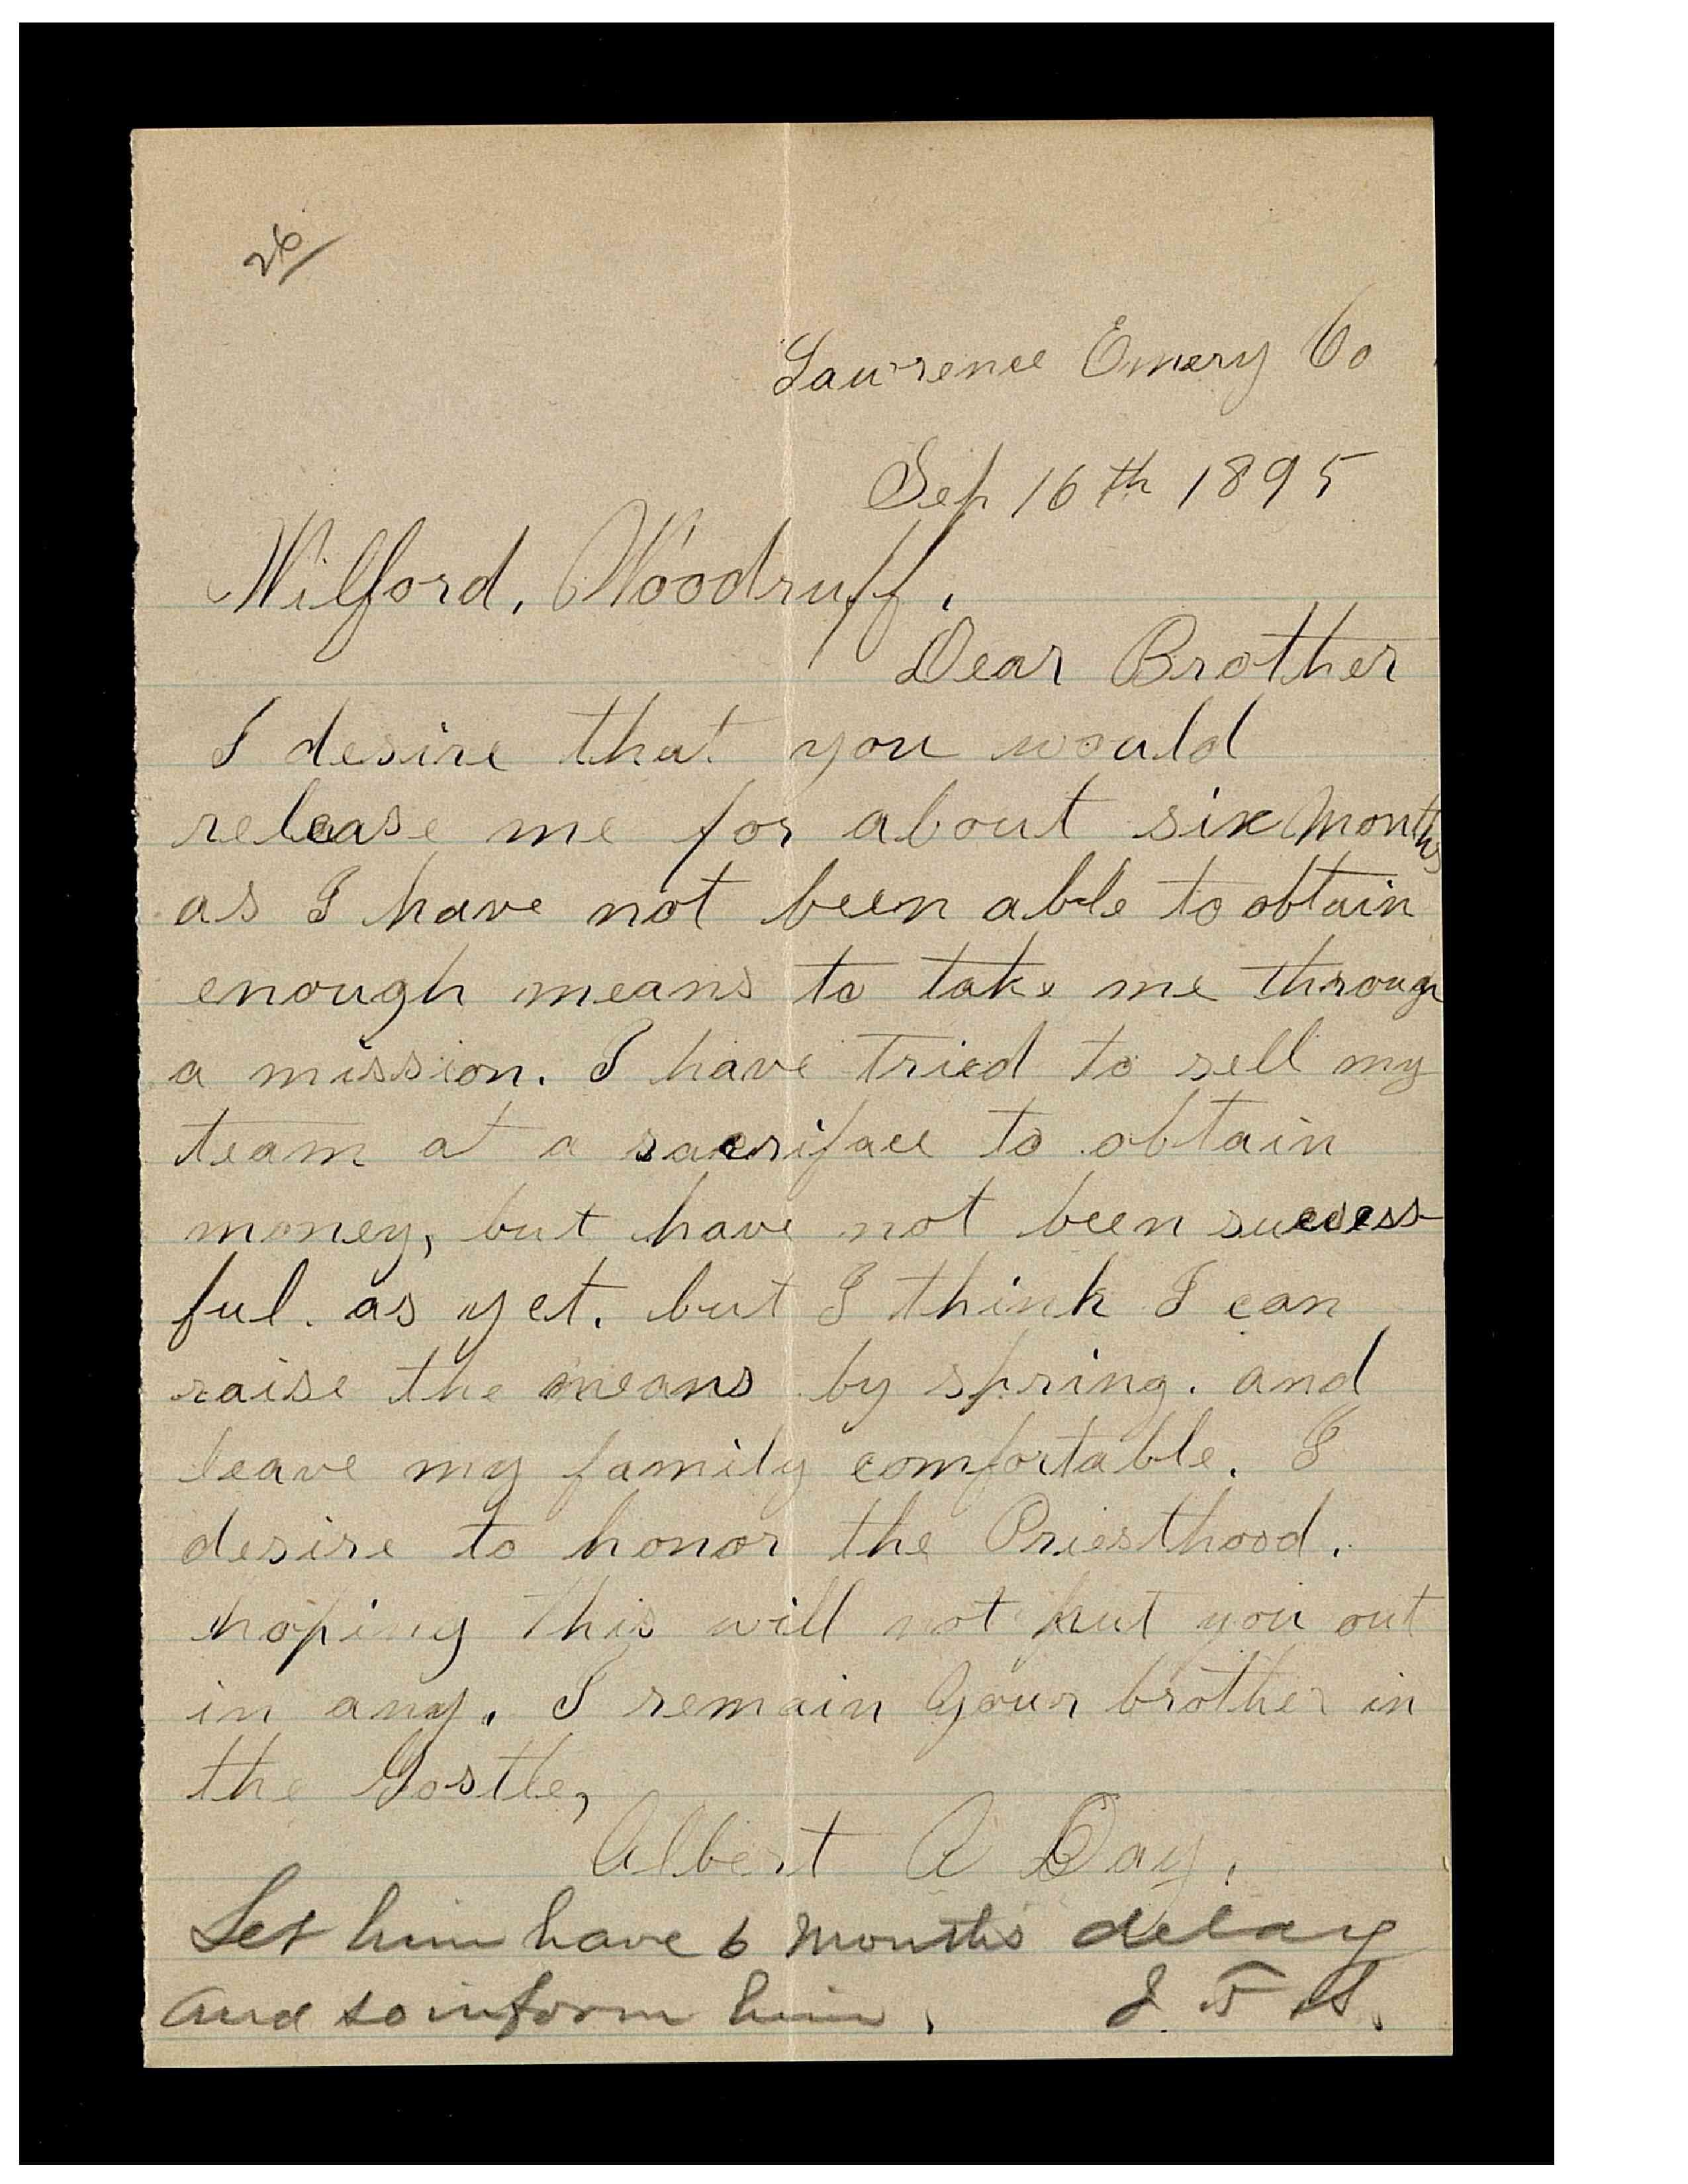 26
Lawrence Emery Co
Sep 16th 1895
Wilford. Woodruff.
Dear Brother
I desire that you would
release me for about six months
as I have not been able to obtain
enough means to take me through
a mission. I have tried to sell my
team at a sacriface to obtain
money, but have not been success
ful. as yet. but I think I can
raise the means by spring. and
leave my family comfortable. I
desire to honor the Priesthood.
hoping this will not put you out
in any. I remain your brother in
the Gostle,
Albert A Day.
Let him have 6 months delay
and so inform him. J. F. S.